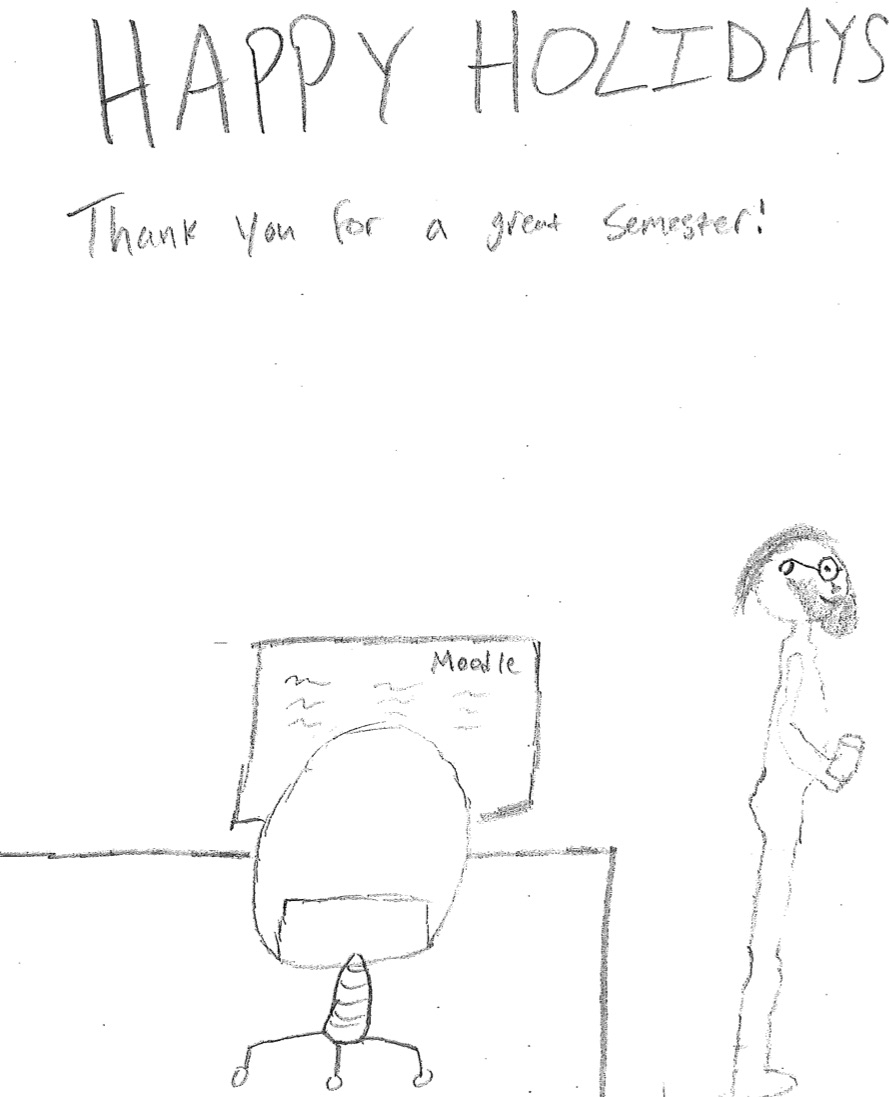 HAPPY HOLIDAYS
Thank you for a great Semester!
Moodle